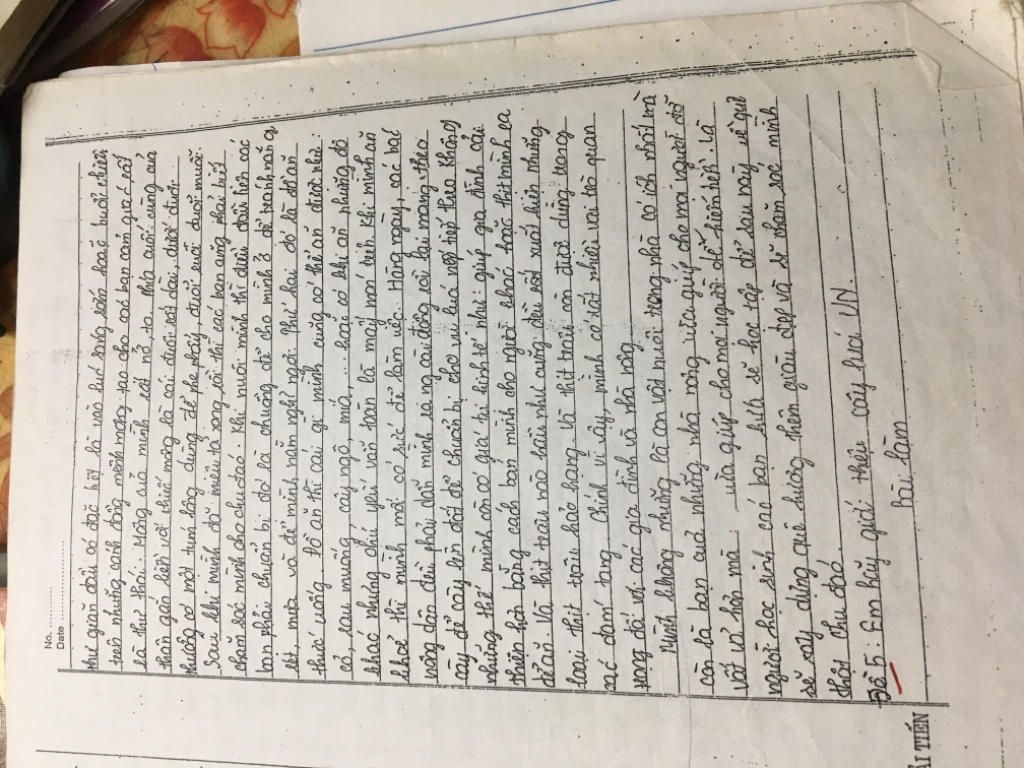 No. ............
Date ............
thư giãn đầu óc đặc biệt là vào lúc sáng sớm hoặc buổi chiều
trên những cánh đồng mênh mông tạo cho các bạn cảm giác rất
là thư thái. Mông của mình rất nở, to. Phía cuối cùng của
thân gắn liền với chiếc mông là cái đuôi rất dài, dưới đuôi
thường có một túm lông dùng để phe phẩy, đuổi ruồi đuổi muỗi.
Sau khi mình đã miêu tả xong, rồi thì các bạn cũng phải biết
chăm sóc mình cho chu đáo. Khi nuôi mình thì điều đầu tiên các
bạn phải chuẩn bị đó là chuồng để cho mình ở để tránh nắng,
rét, mưa và để mình nằm nghỉ ngơi. Thứ hai đó là đồ ăn
thức uống. Đồ ăn thì cái gì mình cũng có thể ăn được như:
cỏ, rau muống, cây ngô, mía,... hoặc có khi ăn những đồ
khác nhưng chủ yếu vẫn toàn là mấy món trên. Khi mình ăn
khoẻ thì mình mới có sức để làm việc. Hàng ngày, các bác
nông dân đều phải dẫn mình ra ngoài đồng rồi lại mang theo
cày để cày lên đất để chuẩn bị cho vụ lúa mới tiếp theo. Không
những thế mình còn có giá trị kinh tế như giúp gia đình cải
thiện hơn bằng cách bán mình cho người khác hoặc thịt mình ra
để ăn. Và thịt trâu nào hầu như cũng đều xuất hiện những
loại thịt trâu hảo hạng. Và thịt trâu còn được dùng trong
các đám tang. Chính vì vậy, mình có rất nhiều vai trò quan
trọng đối với các gia đình và nhà nông.
Mình không những là con vật nuôi trong nhà có ích nhất mà
còn là bạn của những nhà nông vừa giúp cho mọi người đỡ
vất vả hơn mà ... vừa giúp cho mọi người để kiếm tiền. Là
người học sinh các bạn hứa sẽ học tập để sau này về quê
sẽ xây dựng quê hương thêm giàu đẹp và sẽ chăm sóc mình
thật chu đáo.
Đề 5: Em hãy giới thiệu cây lúa VN.
Bài làm
ẢI TIẾN